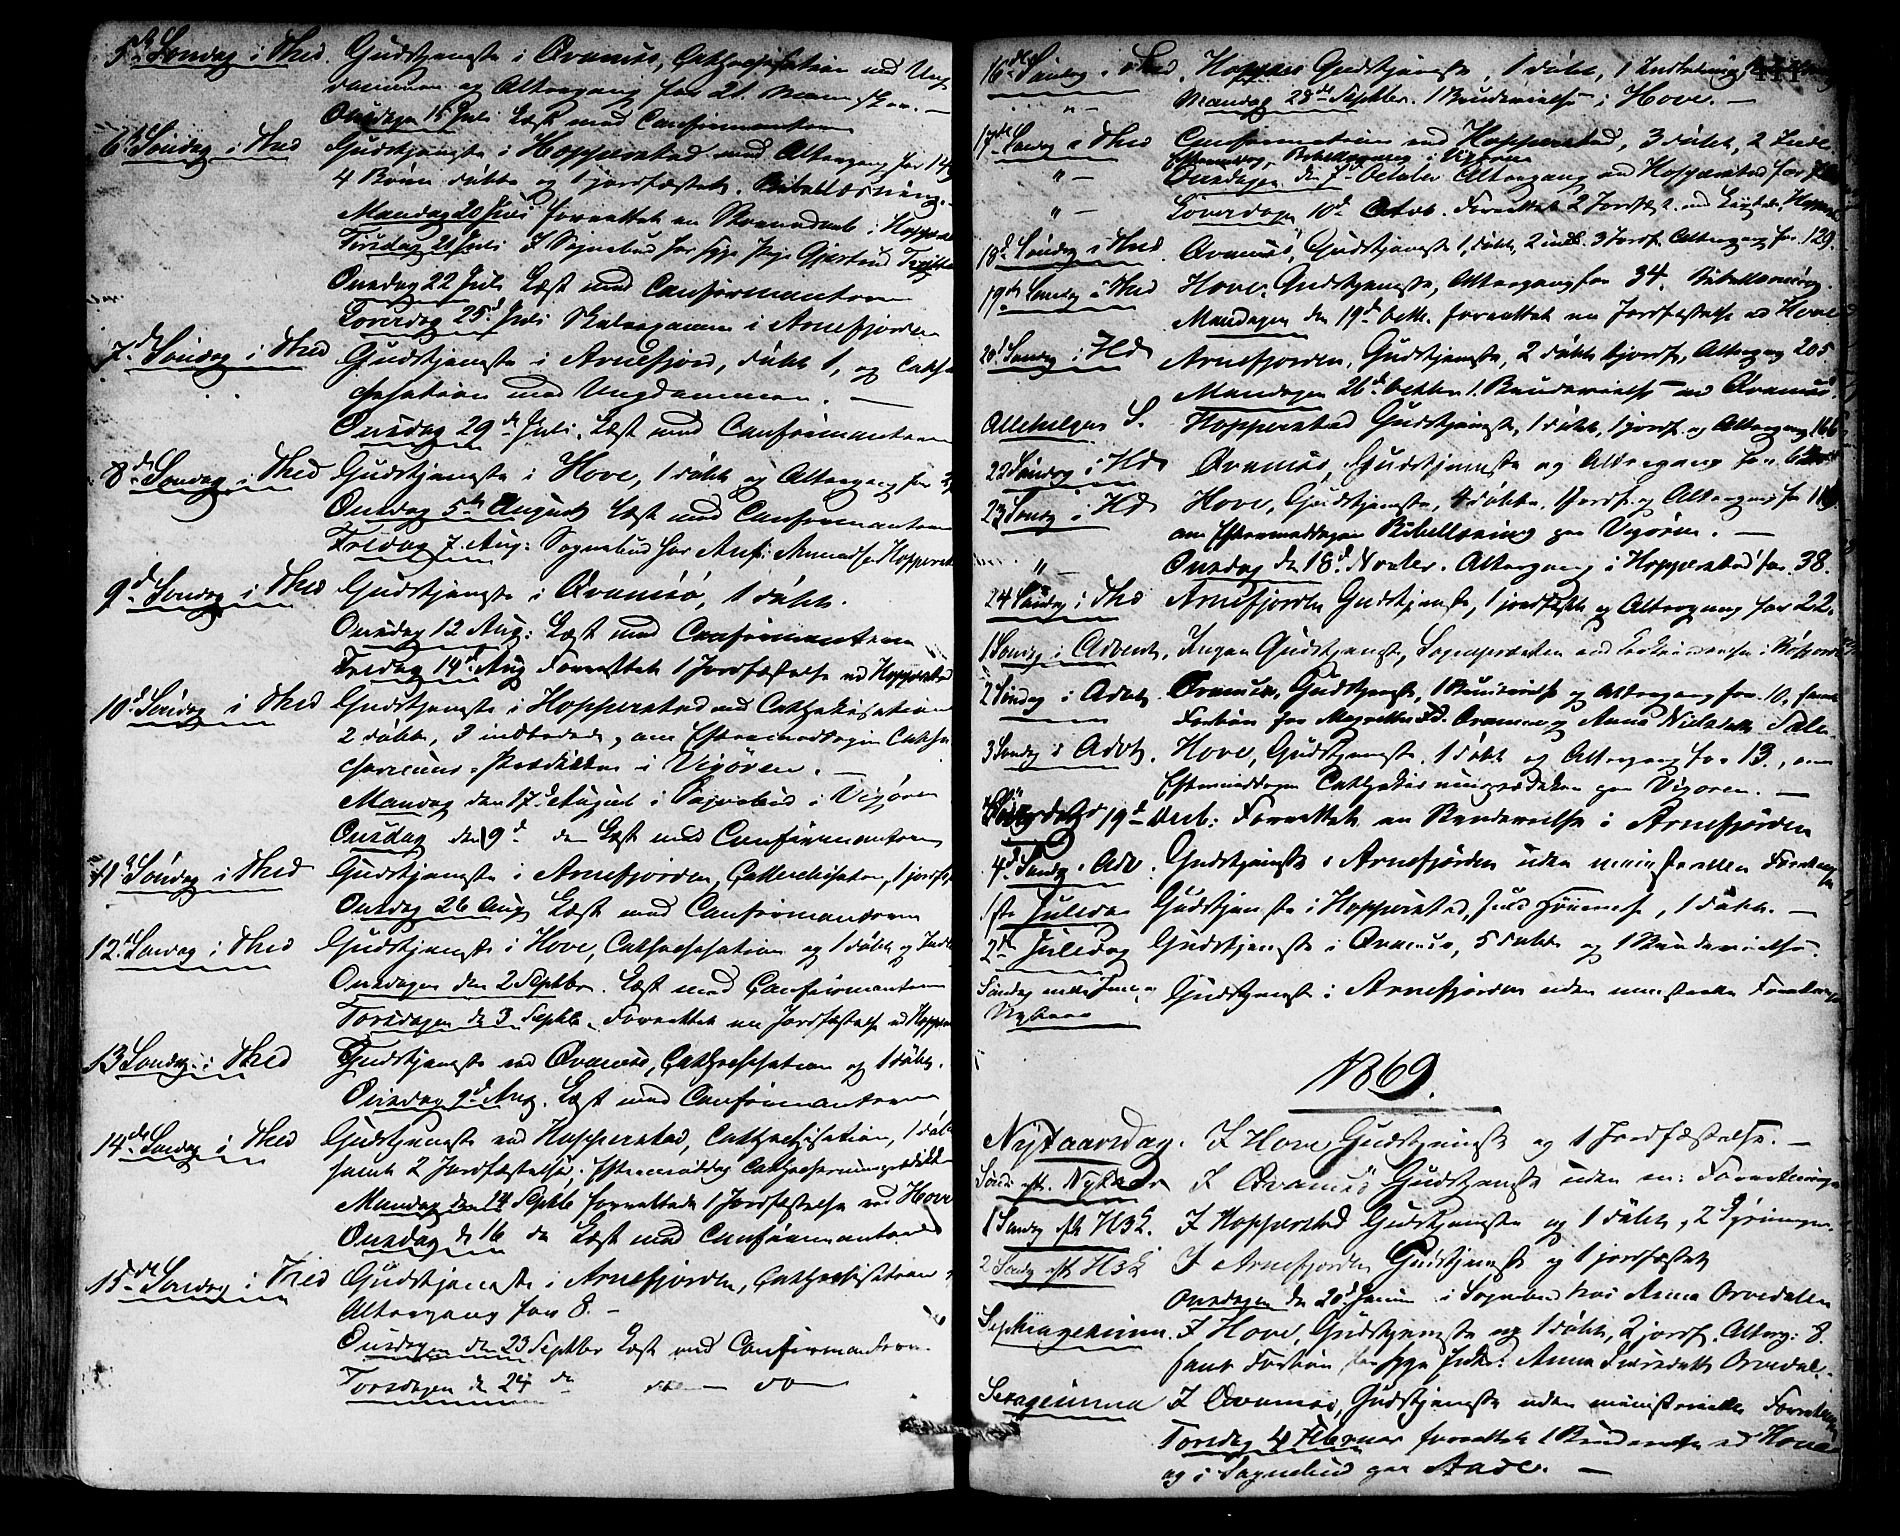 5te Søndag i Thed. Gudstjeneste i Qvamsø, Cathechisation med Ung
dommen og Altergang for 21 Mennesker. —
Onsdagen 15 Juli Læst med Confirmanterne
6te Søndag i Thed Gudstjeneste i Hopperstad med Altergang for 149
4 Børn døbte og 1 jordfæstet. Bibellæsning.
Mandag 20 Juli forrettet en i Hopper
Tirsdag 21 Juli I Sognebud for syge
Onsdag 22 Juli Læst med Confirmanterne
Løverdag 25d Juli Skolexamen i Arnefjorden
7de Søndag i Thed Gudstjeneste i Arnefjord, døbt 1, og Cathe
chesation med Ungdommen. —
Onsdag 29de Juli. Læst med Confirmanterne
8de Søndag i Thed Gudstjeneste i Hove, 1 døbt og Altergang for
Onsdag 5te August Læst med Confirmanterne
Fredag 7 Aug: Sognebud for Hopperst
9d Søndag i Thed Gudstjeneste i Qvamsø, 1 døbt.
Onsdag 12 Aug: Læst med Confirmanterne
Fredag 14d Aug Forrettet 1 Jordfæstelse ved Hopperstad
10d Søndag i Thed Gudstjeneste i Hopperstad med Cathekisation
2 døbte, 3 indledede, om Eftermiddagen Cathe
i Vigøren. —
Mandag den 17d August i Sognebud i Vigøren
Onsdag den 19d do Læst med Confirmanterne
11d Søndag i Thed Gudstjeneste i Arnefjorden, Cathechisation, 1 jordf
Onsdag 26 Aug. Læst med Confirmanterne
12d Søndag i Thed Gudstjeneste i Hove, Cathechesation og 1 døbt og Indl
Onsdagen den 2 Septbr. Læst med Confirmanterne
Torsdagen d 3 Septb. Forrettet en Jordfæstelse ved Hopper
13 Søndag i Thed Gudstjeneste ved Qvamsø, Cathechesation og 1 døbt.
Onsdag 9d Aug. Læst med Confirmanterne
14de Søndag i Thed Gudstjeneste ved Hopperstad, Cathechisation, 1 døbt
samt 2 Jordfæstelse, Eftermiddag
Mandag den 14 Septb forrettede 1 Jordfæstelse ved Hove
Onsdag d 16 do Læst med Confirmanterne
15de Søndag i Thed Gudstjeneste i Arnefjorden, Cathechisation
Altergang for 8. —
Onsdagen den 23 Septbr Læst med Confirmanterne.
Torsdagen d 24 do — do —
16de Søndag i Thed. Hoppers Gudstjeneste, 1 døbt, 1 Indledning,
" — Mandag 28de Septbr. 1 Brudevielse i Hove. —
17de Søndag i Thed Confirmation ved Hopperstad, 3 døbt, 2 Indl.
Eftermidag, i Vigøren
" — Onsdagen den 7d October Altergang ved Hopperstad for
" — Løverdagen 10d Octob. Forrettet 2 Jordfæst.
18d Søndag i Thed Qvamsø, Gudstjeneste 1 døbt, 2 indl. 3 Jordf. Altergang for 129.
19de Søndag i Thed Hove, Gudstjeneste, Altergang for 34. Bibellæsning.
Mandagen den 19d Octb. forrettet en Jordfæstelse ved Hove
20d Søndag i Thd Arnefjorden, Gudstjeneste, 2 døbt jordf, Altergang 205
Mandagen 26d Octbr 1 Brudevielse — ved Qvamsø.
Allehelgens S. Hopperstad Gudstjeneste, 1 døbt, 1 jordf og Altergang 166
22 Søndag i Thd Qvamsø, Gudstjeneste og Altergang for
23 Søndg i Thd Hove, Gudstjeneste, 4 døbte, 1 Jordf. og Altergang for
om Eftermiddagen Bibellæsning paa Vigøren. —
" — Onsdag den 18d Novbr. Altergang i Hopperstad for 38.
24 Søndag i Thd Arnefjorden Gudstjeneste, 1 jordfæstet og Altergang for 22.
1 Søndag i Advent, Ingen Gudstjeneste,
2 Søndag i Advt. Qvamsø, Gudstjeneste, 1 Brudevielse og Altergang for 10, samt
Forbøn for Anna Nielsdatt
3 Søndag i Advt. Hove, Gudstjeneste. 1 døbt og Altergang for 13, om
Eftermiddagen paa Vigøren. —
Løverdag 19d Decb: Forrettet en Brudevielse i Arnefjorden
4d Søndg i Adv. Gudstjeneste i Arnefjorden uden ministerielle Forretninger
1ste Juledag Gudstjeneste i Hopperstad, 1 døbt. —
2d Juledag Gudstjeneste i Qvamsø, 5 døbt og 1 Brudevielse.
Søndag mell: Jul og
Nytaar Gudstjeneste i Arnefjorden uden ministerielle Forretninger
1869.
Nytaarsdag. I Hove, Gudstjeneste og 1 Jordfæstelse. —
Sønd. eft. Nytaar I Qvamsø Gudstjeneste uden m: Forretninger
1 Søndg eft. H3K. I Hopperstad Gudstjeneste og 1 døbt, 2
2 Søndg eft H3K I Arnefjorden Gudstjeneste og 1 jordfæstet
Onsdagen d 20d Januar i Sognebud hos Anna Orvedalen
Septuagesima. I Hove, Gudstjeneste og 1 døbt, 2 jordf. Alterg: 8.
samt Forbøn for syge Anna Orvedal.
Sexagesima I Qvamsø, Gudstjeneste uden ministerielle Forretninger
Torsdag 4 Februar forrettet 1 Brudevielse ved Hove
og i Sognebud paa